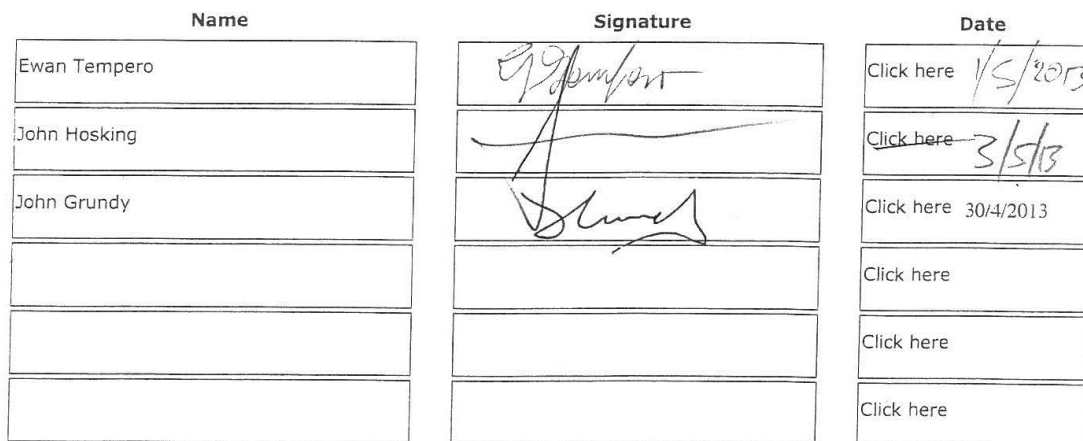 Name Signature Date
Ewan Tempero Click here 1/5/2013
John Hosking Click here 3/5/13
John Grundy Click here 30/4/2013
Click here
Click here
Click here